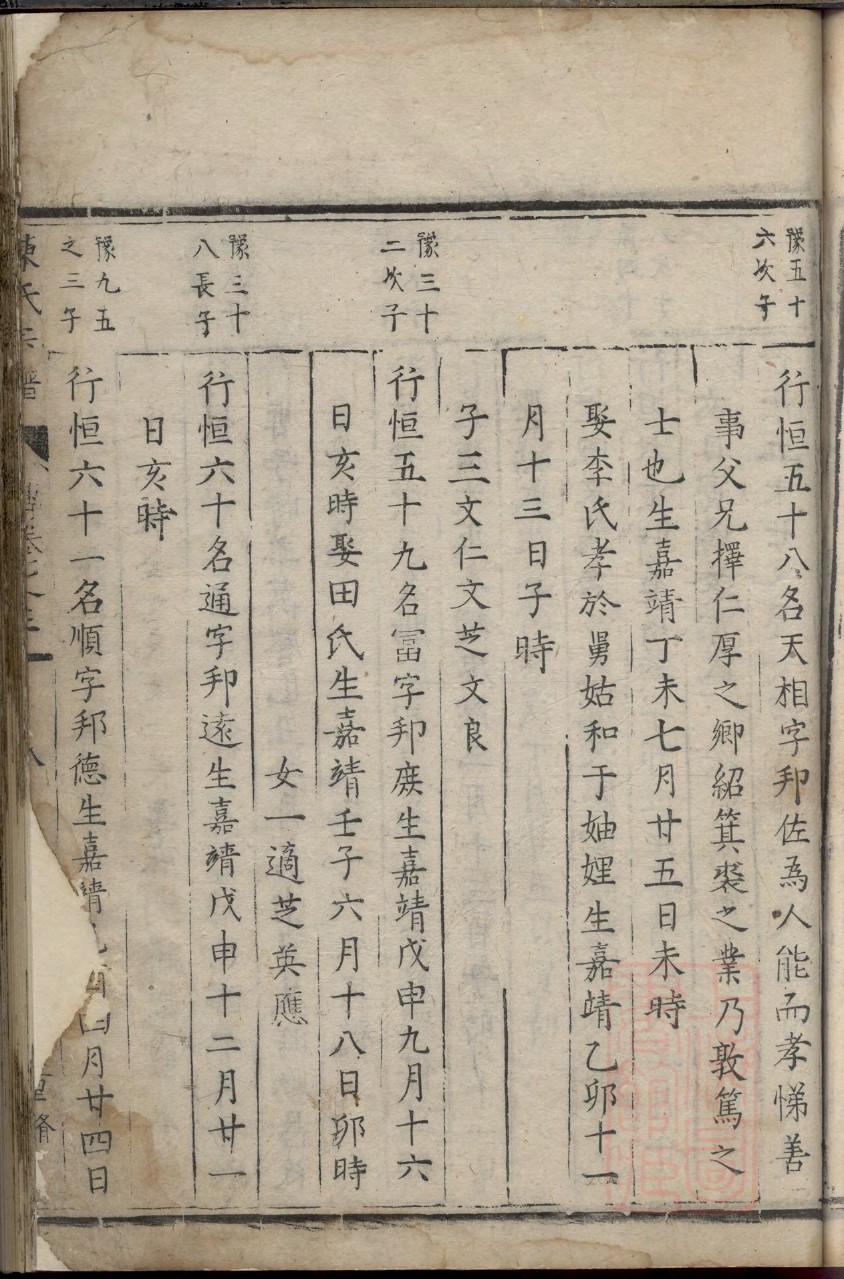 豫五十
六次子
行恒五十八名天相字邦佐為人能而孝悌善
事父兄擇仁厚之鄉紹箕裘之業乃敦篤之
士也生嘉靖丁未七月廿五日未時
娶李氏孝於舅姑和于妯娌生嘉靖乙卯十一
月十三日子時
子三文仁文芝文良
豫三十
二次子
行恒五十九名冨字邦庻生嘉靖戊申九月十六
日亥時娶田氏生嘉靖壬子六月十八日卯時
女一適芝英應
豫三十
八長子
行恒六十名通字邦遠生嘉靖戊申十二月廿一
日亥時
豫九五
之三子
行恒六十一名順字邦德生嘉靖酉四月廿四日
陳氏宗譜
重脩